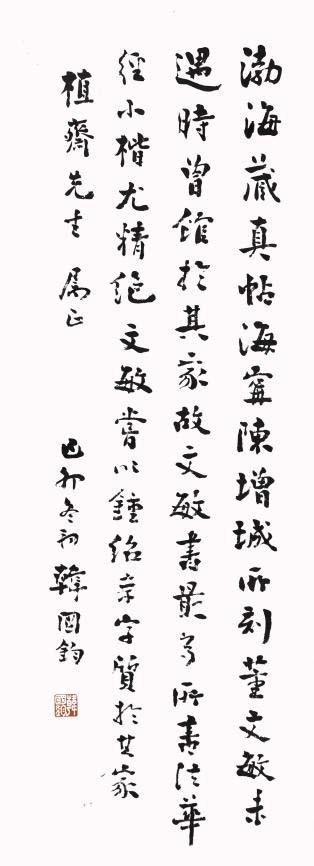 渤海藏真帖海寧陳增城所刻董文敏未
遇時曾館於其家故文敏書最多所書法華
經小楷尤精絕文敏嘗以鍾紹京字質於其家
植齋先生屬正
己卯冬初韓國鈞